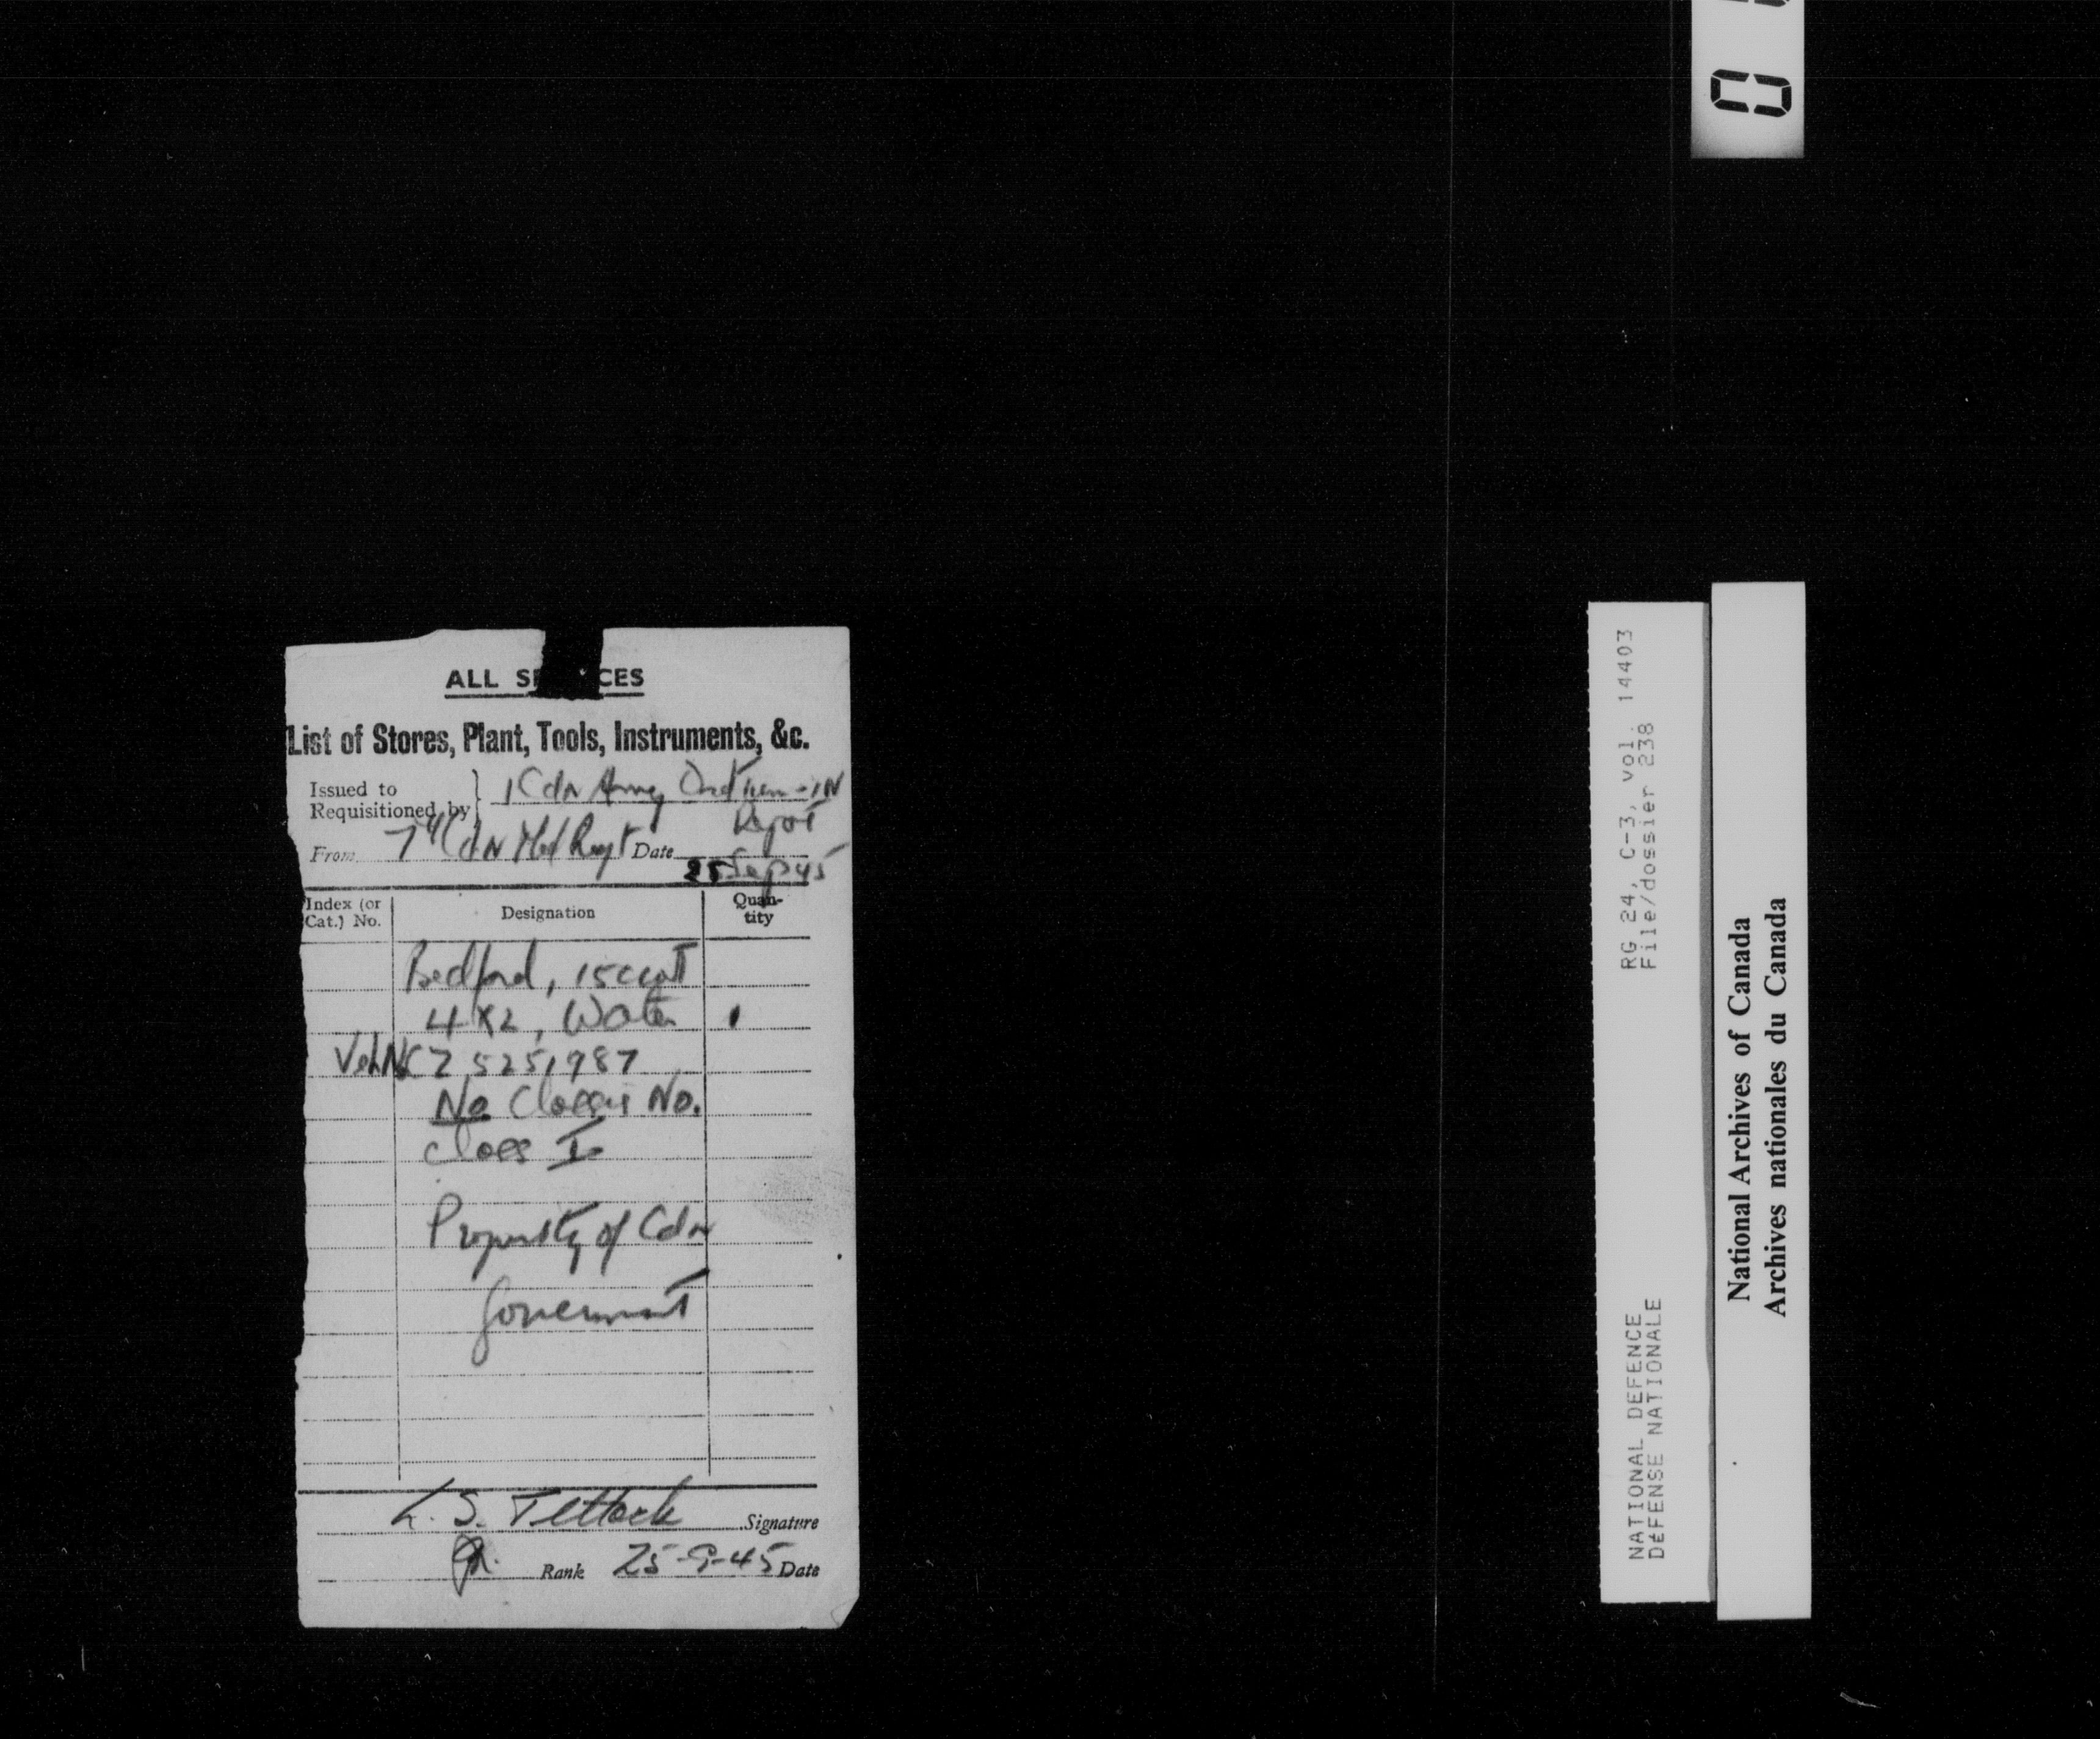 ALL SE CES
List of Stores, Plant, Tools, Instruments, &c.
Issued to
Requisitioned by } 1 Cdn Army Ord -IN
Depot
From 7th Cdn Med Regt Date
25 Sep 45
Index (or Cat.) No. Designation Quan-tity
Bedford, 15cwt
4x2, Water 1
Veh No CZ 5251987
No Chassis No.
Class I
Property of Cdn
Government
Signature
Rank 25-9-45 Date
RG 24, C-3, vol. 14403
File/dossier 238
NATIONAL DEFENCE
DéFENSE NATIONALE
National Archives of Canada
Archives nationales du Canada